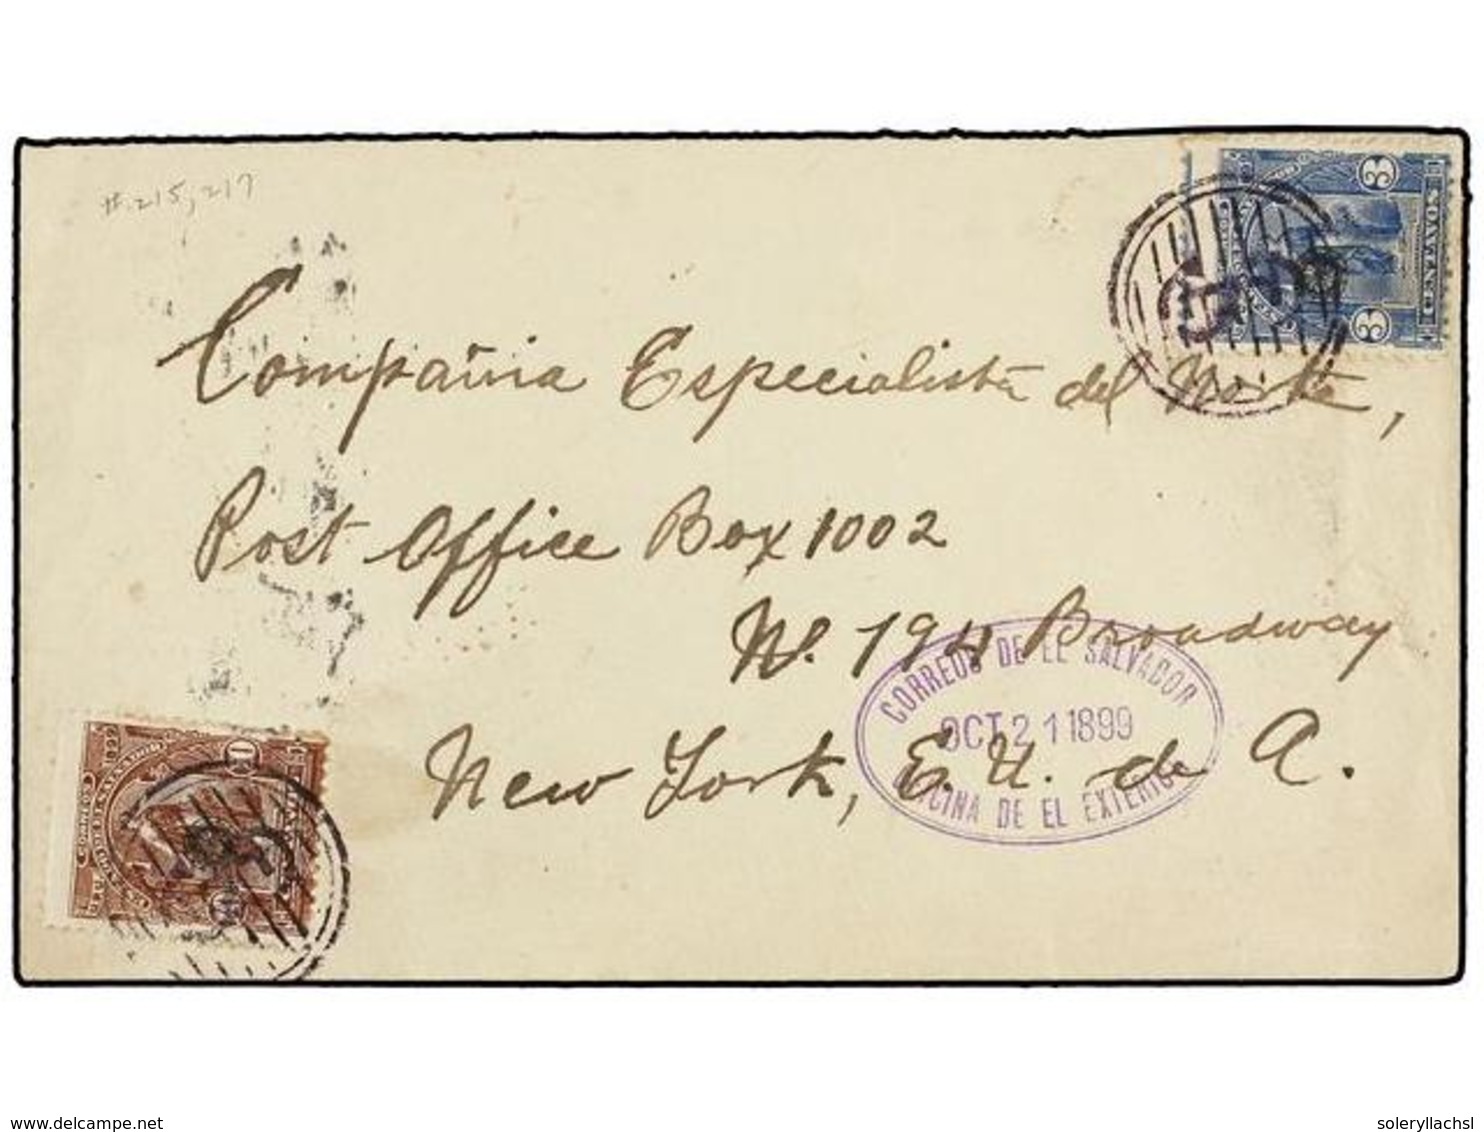 #215, 217
3
CENTAVOS
3
Compañia Especialista del Norte,
Post Office Box 1002
No. 194 Broadway
CORREOS DE EL SALVADOR
OCT 21 1899
OFICINA DE EL EXTERIOR
New York, E. U. de A.
CORREOS
1899
www.delcampe.net
soleryllachsl